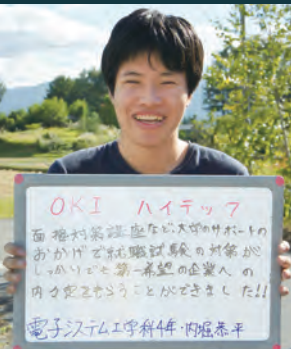 OKI ハイテック
面接対策講座など、大学のサポートの
おかげで就職試験の対策が
しっかりでき第一希望の企業への
内々定をもらうことができました!!
電子システム工学科4年・内堀恭平